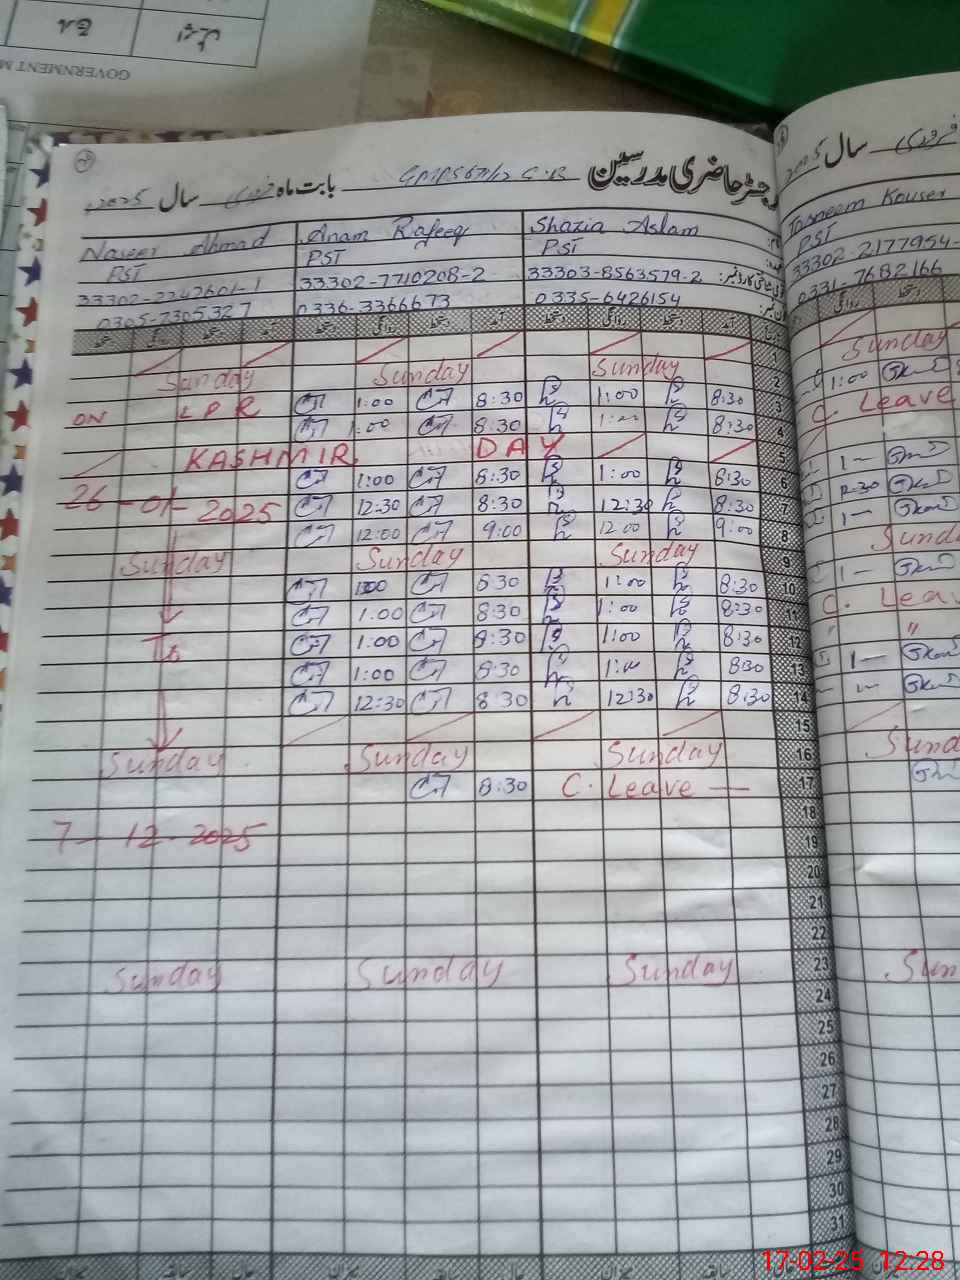 GOVERNMENT M
رجسٹر حاضری مدرسین GMPS 671/12 G.B بابت ماہ فروری سال 2025ء
فروری سال 2025
Naseer Ahmad Anam Rafeeq Shazia Aslam Tasneem Kouser
PST PST PST PST
33302-2242601-1 33302-7710208-2 33303-8563579-2 33302-2177954-
0305-7305327 0336-3366673 0335-6426154 0331-7682166
دستخط روانگی دستخط آمد دستخط روانگی دستخط آمد دستخط روانگی دستخط آمد
1
Sunday Sunday Sunday 2 Sunday
ON LPR 1:00 8:30 1:00 8:30 3 1:00
1:00 8:30 1:00 8:30 4 C. Leave
KASHMIR DAY 5
1:00 8:30 1:00 8:30 6 1—
26-01-2025 12:30 8:30 12:30 8:30 7 12:30
12:00 9:00 12:00 9:00 8 1—
Sunday Sunday Sunday 9 Sund
1:00 8:30 1:00 8:30 10 1—
1:00 8:30 1:00 8:30 11 C. Leav
To 1:00 8:30 1:00 8:30 12 "
1:00 8:30 1:00 8:30 13 1—
12:30 8:30 12:30 8:30 14 1—
15
Sunday Sunday Sunday 16 Sund
8:30 C. Leave — 17
18
7-12-2025 19
20
21
22
Sunday Sunday Sunday 23 Sun
24
25
26
27
28
29
30
31
17-02-25 12:28